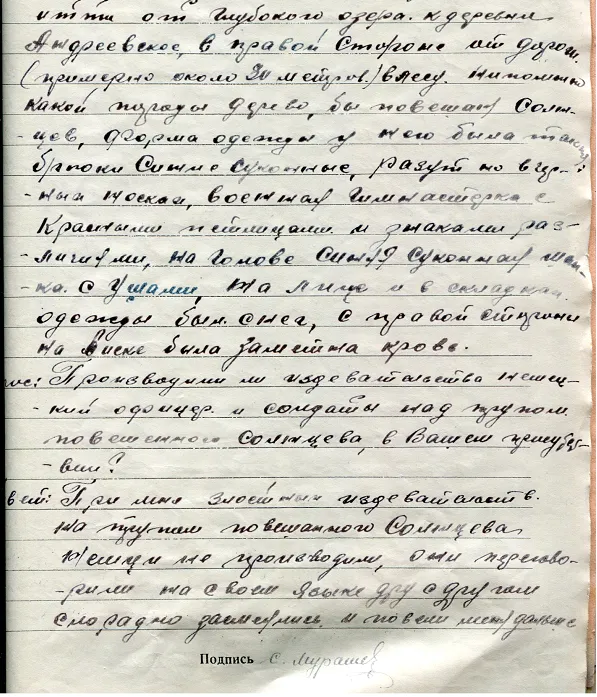 итти от глубокого озера. к деревни
Андреевское, в правой стороне от дороги.
(примерно около 30 метров.) в лесу. непомню
какой породы дерево, был повешан Солн-
-цев, форма одежды у него была такая
брюки синие суконные, разут но в чер-
-ных носках, военная гимнастерка с
красными петлицами и знаками раз-
-личиями, на голове синяя суконная шап-
-ка с ушами, на лице и в складках
одежды был снег, с правой стороны
на виске была заметна кровь.
рос: Производили ли издевательства немец-
-кий офицер и солдаты над трупом
повешенного Солнцева, в Вашем присутст-
-вии?
вет: При мне злостных издевательств.
на трупом повешанного Солнцева
немцы не производили, они перегово-
-рили на своем языке друг с другом
засмеялись и повели меня дальше
Подпись С. Мурашев